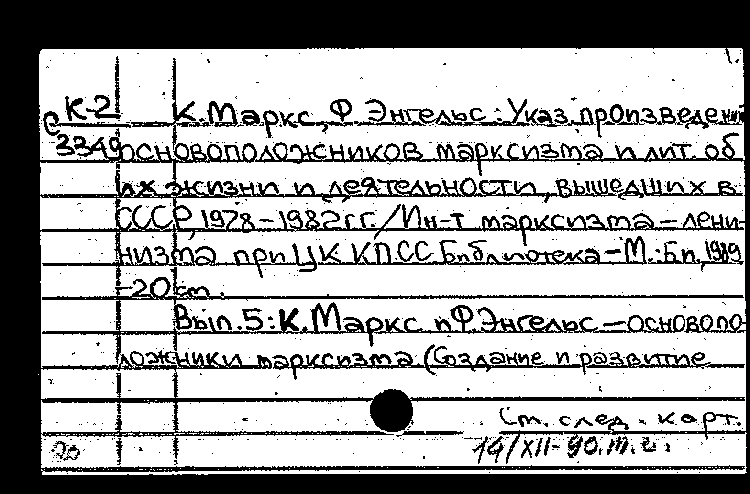 К-2 К. Маркс, Ф. Энгельс: Указ. произведений
С 3349 основоположников марксизма и лит. об
их жизни и деятельности, вышедших в
СССР, 1978-1982гг. / Ин-т марксизма-лени-
низма при ЦК КПСС Библиотека - М.: Бп, 1989
-20 см.
Вып. 5: К. Маркс и Ф. Энгельс - осново по-
ложники марксизма (Создание и развитие
См. след. карт.
20 14/XII-90. т. г.